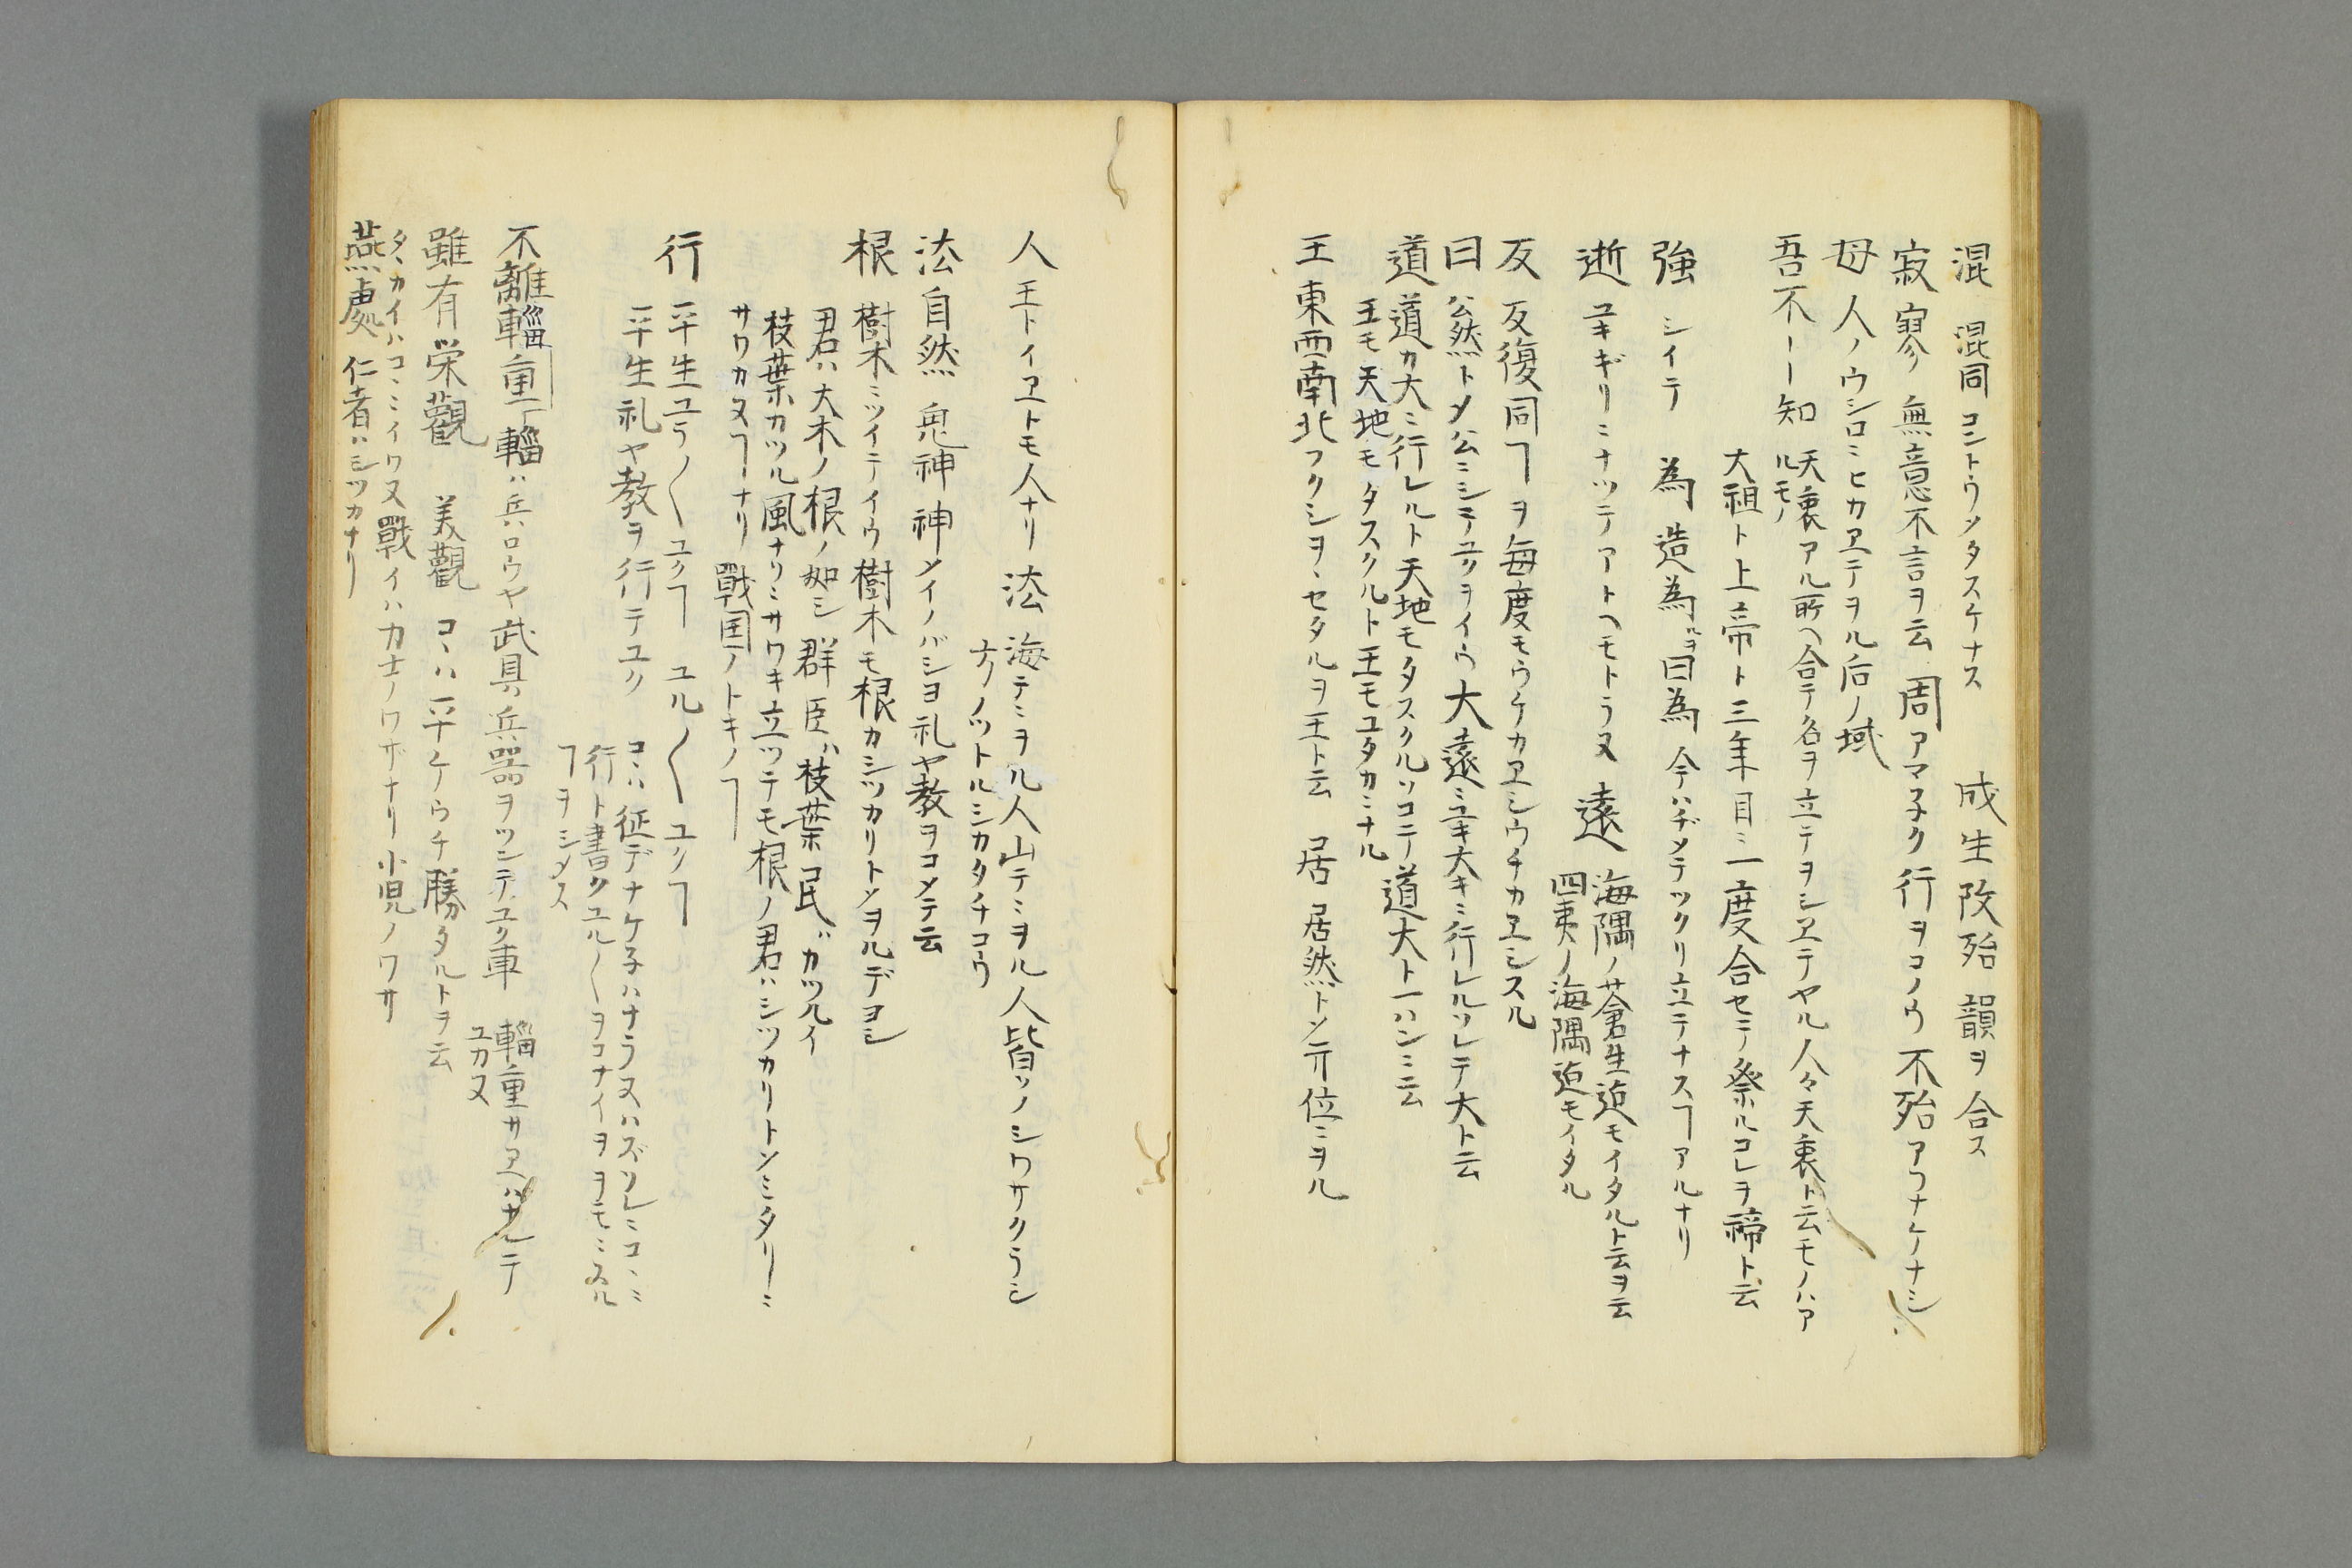 混 混同 コントウメタスケナス 成生改殆韻ヲ合ス
寂寥 無意不言ヲ云 周 アマ子ク行ヲコノウ 不殆 アフナケナシ
母 人ノウシロニヒカヱテヲル后ノ域
吾不ーー知 天衷アル所ヘ合テ名ヲ立テヲシヱテヤル人々天衷ト云モノハア
ルモノ
大祖ト上帝ト三年目ニ一度合セテ祭ルコレヲ禘ト云
強 シイテ 為 造為 曰為 今ハヂメテツクリ立テナスヿアルナリ
逝 ユキギリニナツテアトヘモトラヌ 遠 海隅ノ蒼生迠モイタルト云ヲ云
四夷ノ海隅迠モイタル
反 反復同ヿヲ毎度モウケカヱシウチカヱシスル
曰 公然トメ公ニシテユクヲイウ 大 遠ニユキ大キニ行レルソレテ大ト云
道 道カ大ニ行レルト天地モタスクルソコテ道大ト一ハンニ云
王モ天地モタスクルト王モユタカニナル
王 東西南北フクシヲヽセタルヲ王ト云 居 居然トメ亓位ニヲル
人 王トイヱトモ人ナリ 法 海テニヲル人山テニヲル人皆ソノシワサクラシ
方ノノットルシカタチコウ
法自然 鬼神神メイノバショ礼ヤ教ヲコメテ云
根 樹木ニツイテイウ樹木モ根カシツカリトメヲルデヨシ
君ハ大木ノ根ノ如シ群臣ハ枝葉民ガカツルイ
枝葉カツル風ナリニサワキ立ツテモ根ノ君ハシツカリトメミタリーニ
サワカヌヿーナリ 戰国ノトキノヿ
行 平生ユラ〱ユクヿ ユル〱ユクヿ
平生礼ヤ教ヲ行テユク コヽハ征デナケ子ハナラヌハズソレニコヽニ
行ト書クユル〱ヲコナイヲヲモニスル
ヿヲシメス
不離輜重 輜ハ兵ロウヤ武具兵器ヲツンテユク車 輜重サヱハナルテ
ユカヌ
雖有栄觀 美觀 コヽハ平ケウチ勝タルトヲ云
タヽカイハコヽニイワヌ戰イハ力士ノワザナリ小児ノワサ
燕處 仁者ハシツカナリ